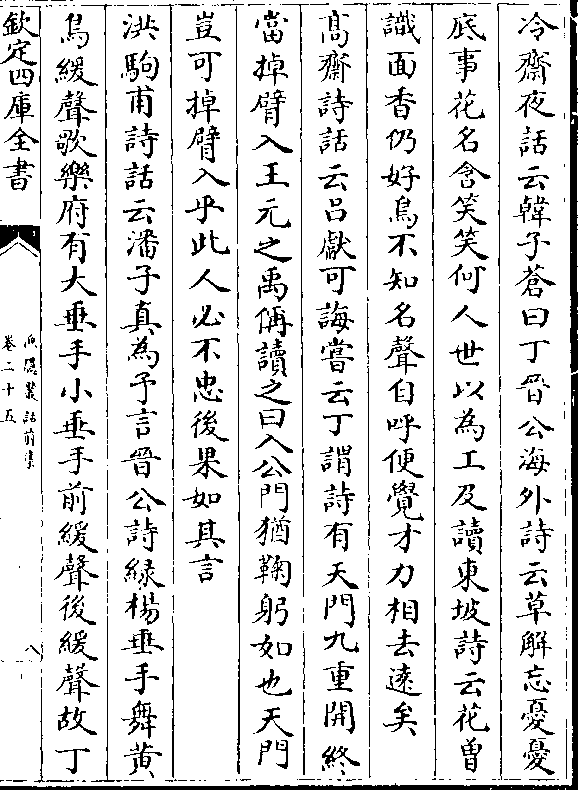 冷齋夜話云韓子蒼曰丁晉公海外詩云草解忘憂憂
底事花名含笑笑何人世以為工及讀東坡詩云花曽
識面香仍好鳥不知名聲自呼便覺才力相去遠矣
髙齋詩話云吕獻可誨嘗云丁謂詩有天門九重開終
當掉臂入王元之禹偁讀之曰入公門猶鞠躬如也天門
豈可掉臂入乎此人必不忠後果如其言
洪駒甫詩話云潘子真為予言晉公詩緑楊垂手舞黄
鳥緩聲歌樂府有大垂手小垂手前緩聲後緩聲故丁
欽定四庫全書
漁隠叢話前集
卷二十五
八